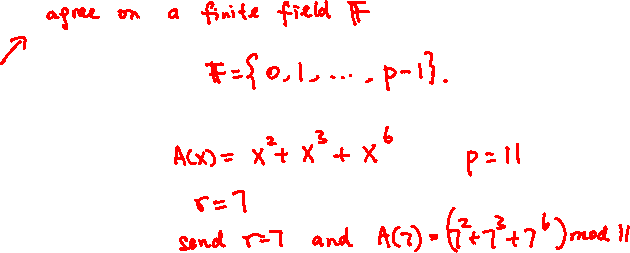 agree on a finite field 𝔽
𝔽={0,1,...,p-1}.
A(x)= x²+ x³ + x⁶ p=11
r=7
send r=7 and A(7)=(7²+7³+7⁶) mod 11